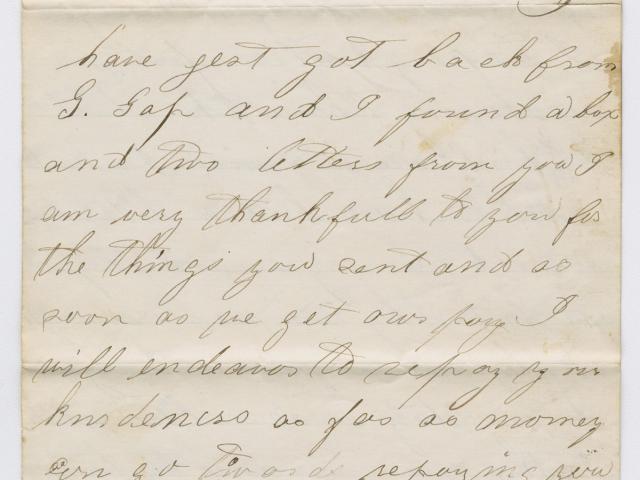 have jest got back from
G. Gap and I found a box
and two letters from you I
am very thankfull to you for
the things you sent and as
soon as we get our pay I
will endeavor to repay your
kindeness as far as money
can go towards repaying you